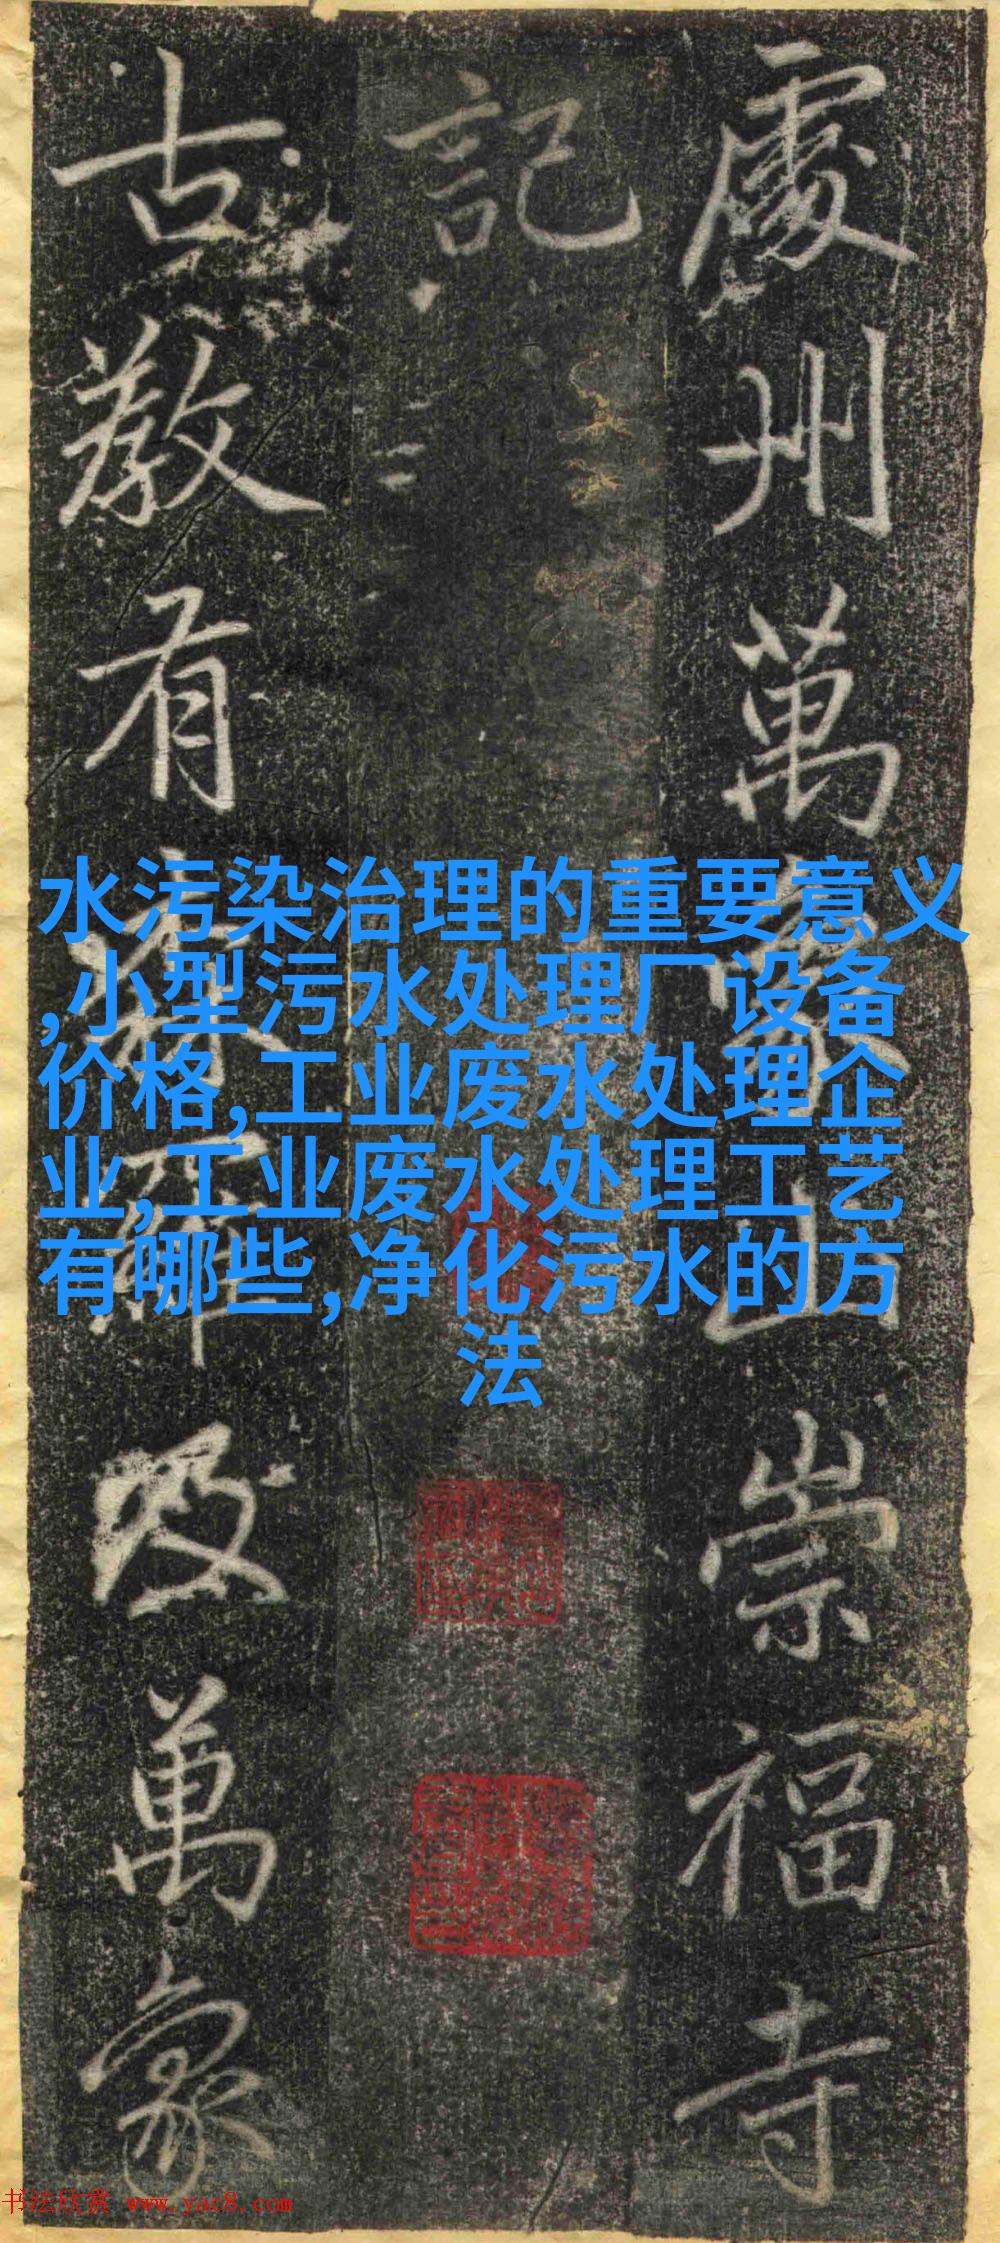 處州萬象山崇福寺
記
古教有森羅及萬象
水污染治理的重要意义
,小型污水处理厂设备
价格,工业废水处理企
业,工业废水处理工艺
有哪些,净化污水的方
法
书法欣赏 www.yac8.com